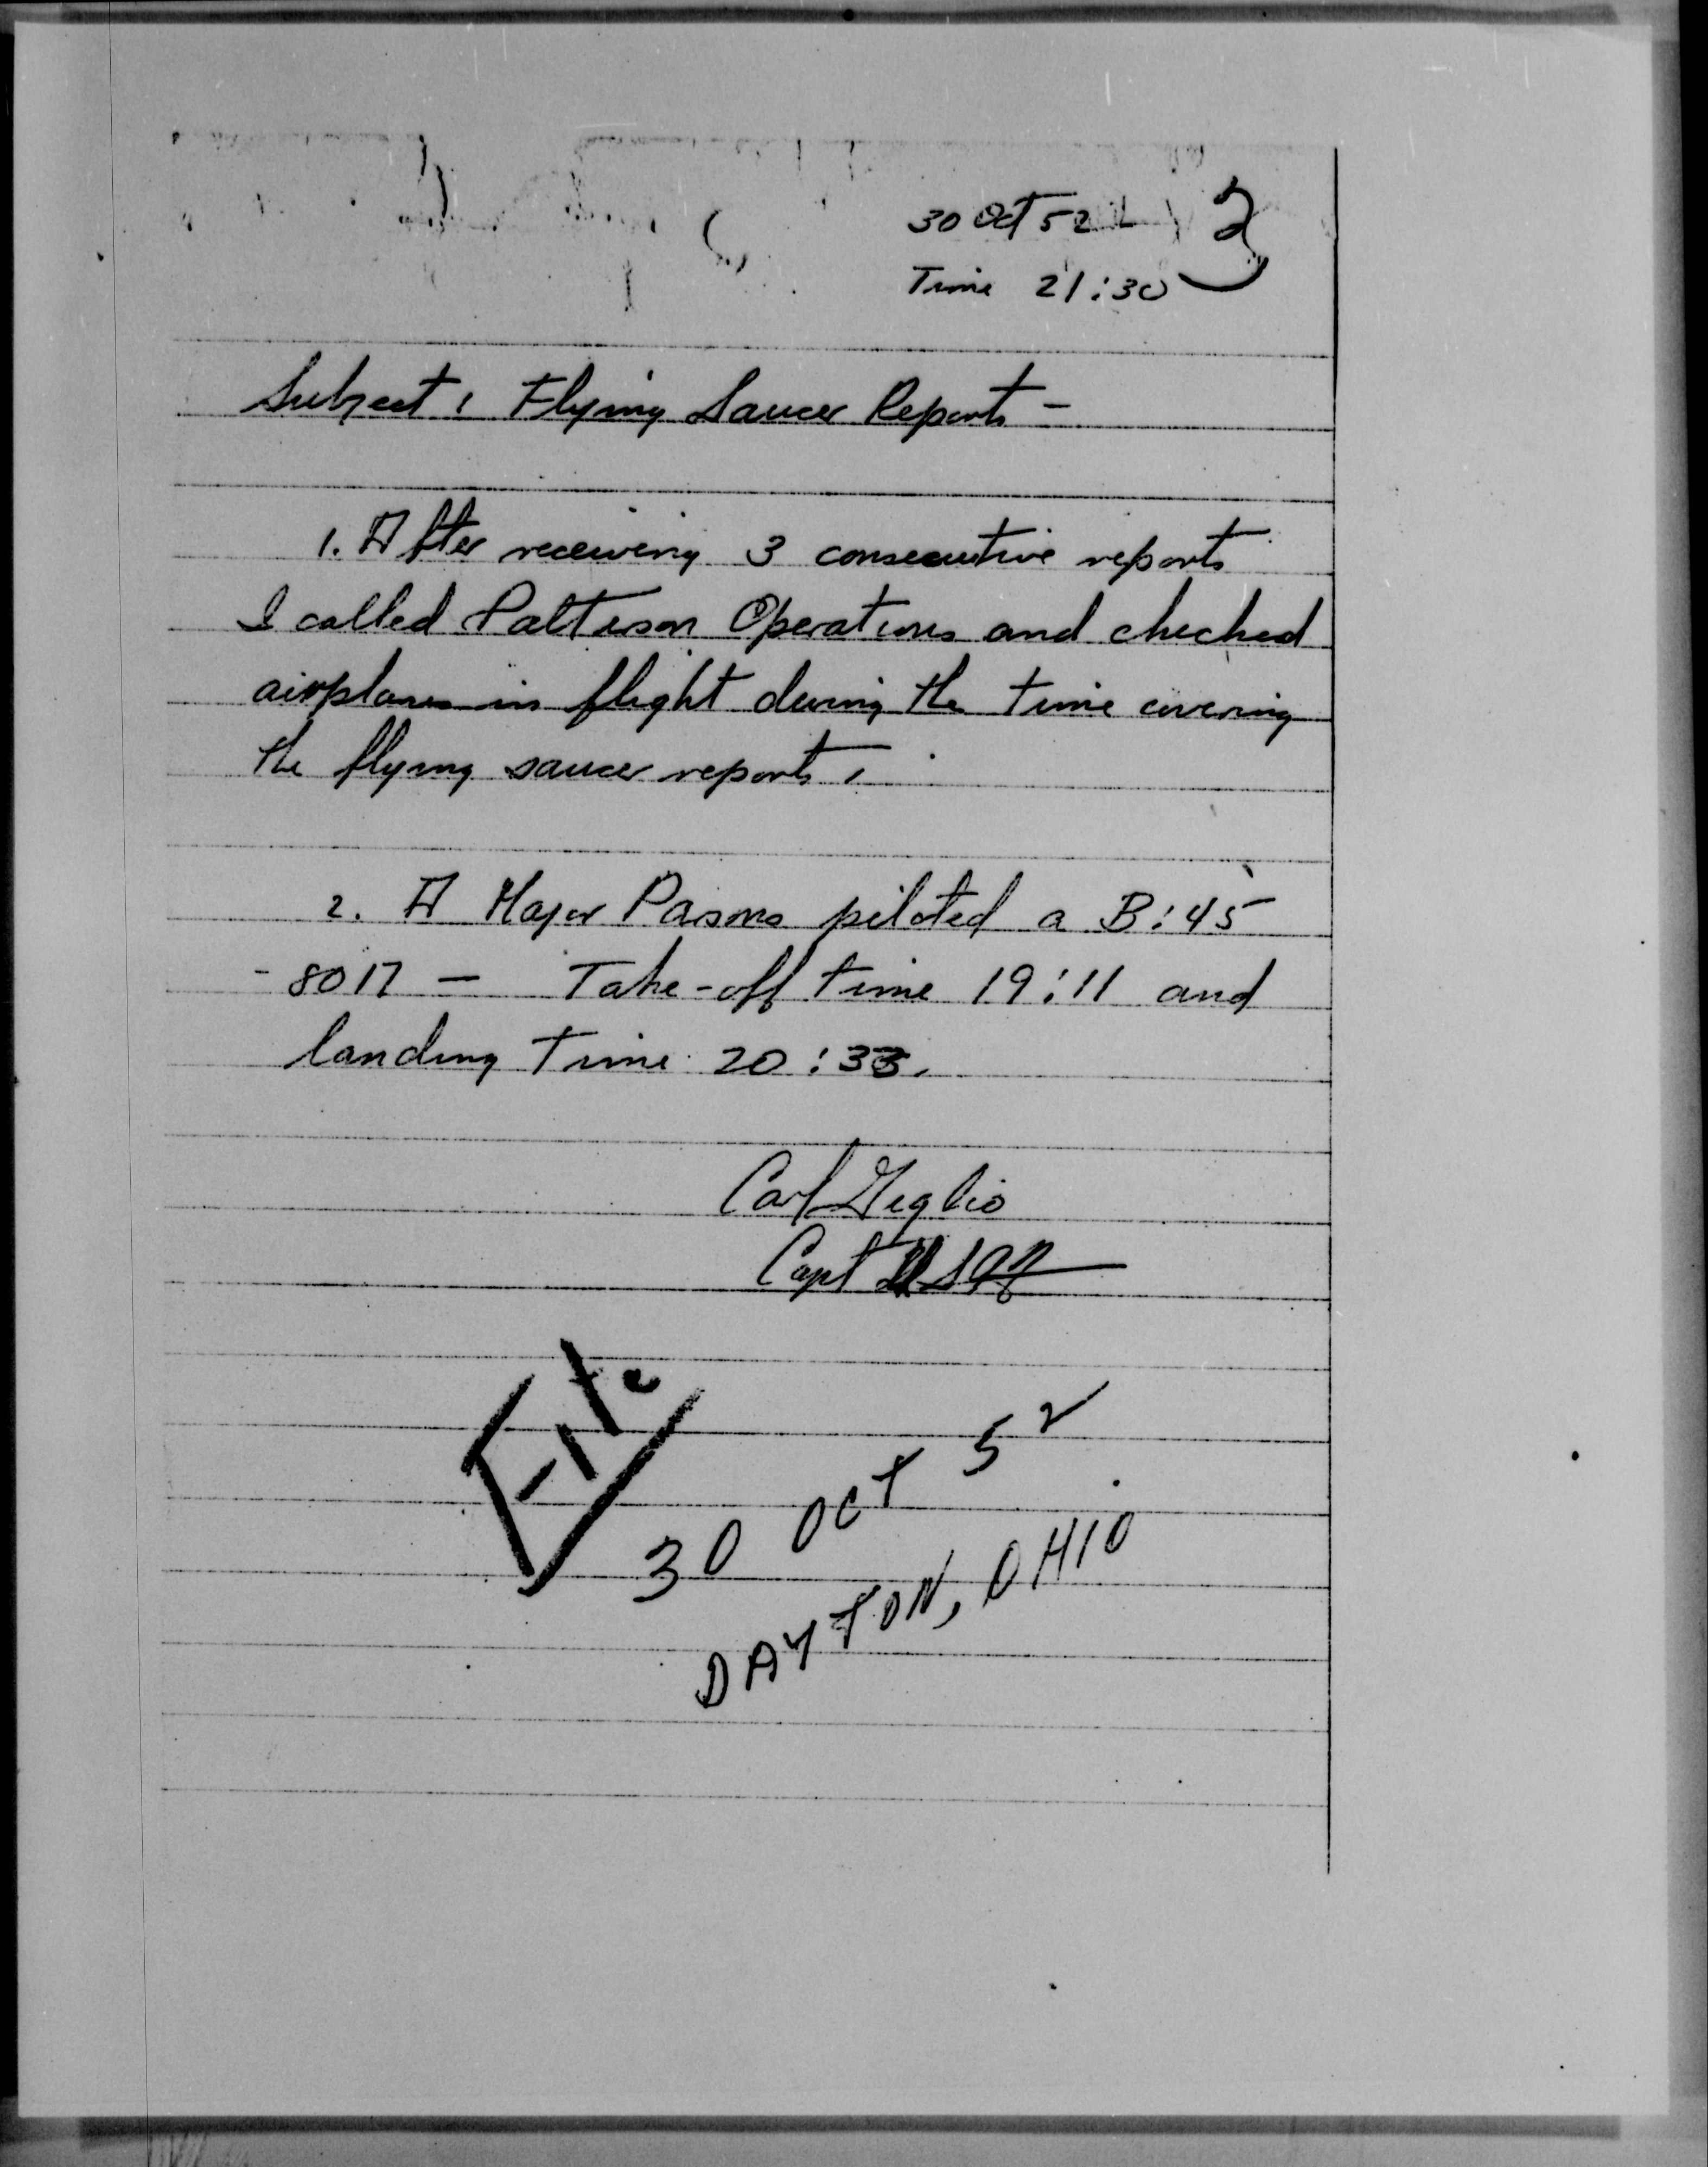 30 Oct 52
2
Time 21:30
Subject: Flying Saucer Reports -
1. After receiving 3 consecutive reports
I called Patterson Operations and checked
airplanes in flight during the time covering
the flying saucer reports.
2. A Major Pasons piloted a B:45
- 8017 - Take-off time 19:11 and
landing time 20:33.
Carl Geglio
Capt USAF
File
30 OCT 52
DAYTON, OHIO